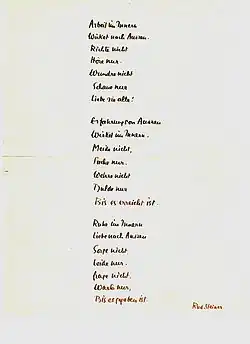 Arbeit im Innern
Wirket nach Aussen.
Richte nicht
Höre nur.
Wundre nicht
Schaue nur
Liebe sie alle!
Erfahrung von Aussen
Wirket im Innern.
Meide nicht,
Suche nur.
Wehre nicht
Dulde nur
Bis es erreicht ist.
Ruhe im Innern
Liebe nach Aussen
Sorge nicht
Leide nur.
frage nicht,
Warte nur,
Bis es gegeben ist.
Rud Steiner